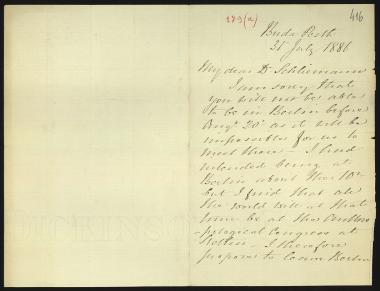 173(a)
416
Buda Pesth
31 July 1886
My dear Dr Schliemann
I am sorry that
you will not be able
to be in Berlin before
Augt 20th as it will be
impossible for us to
meet there – I had
intended being at
Berlin about the 10th
but I find that all
the world will at that
time be at the Anthro
-pological Congress at
Stettin – I therefore
propose to leave Berlin